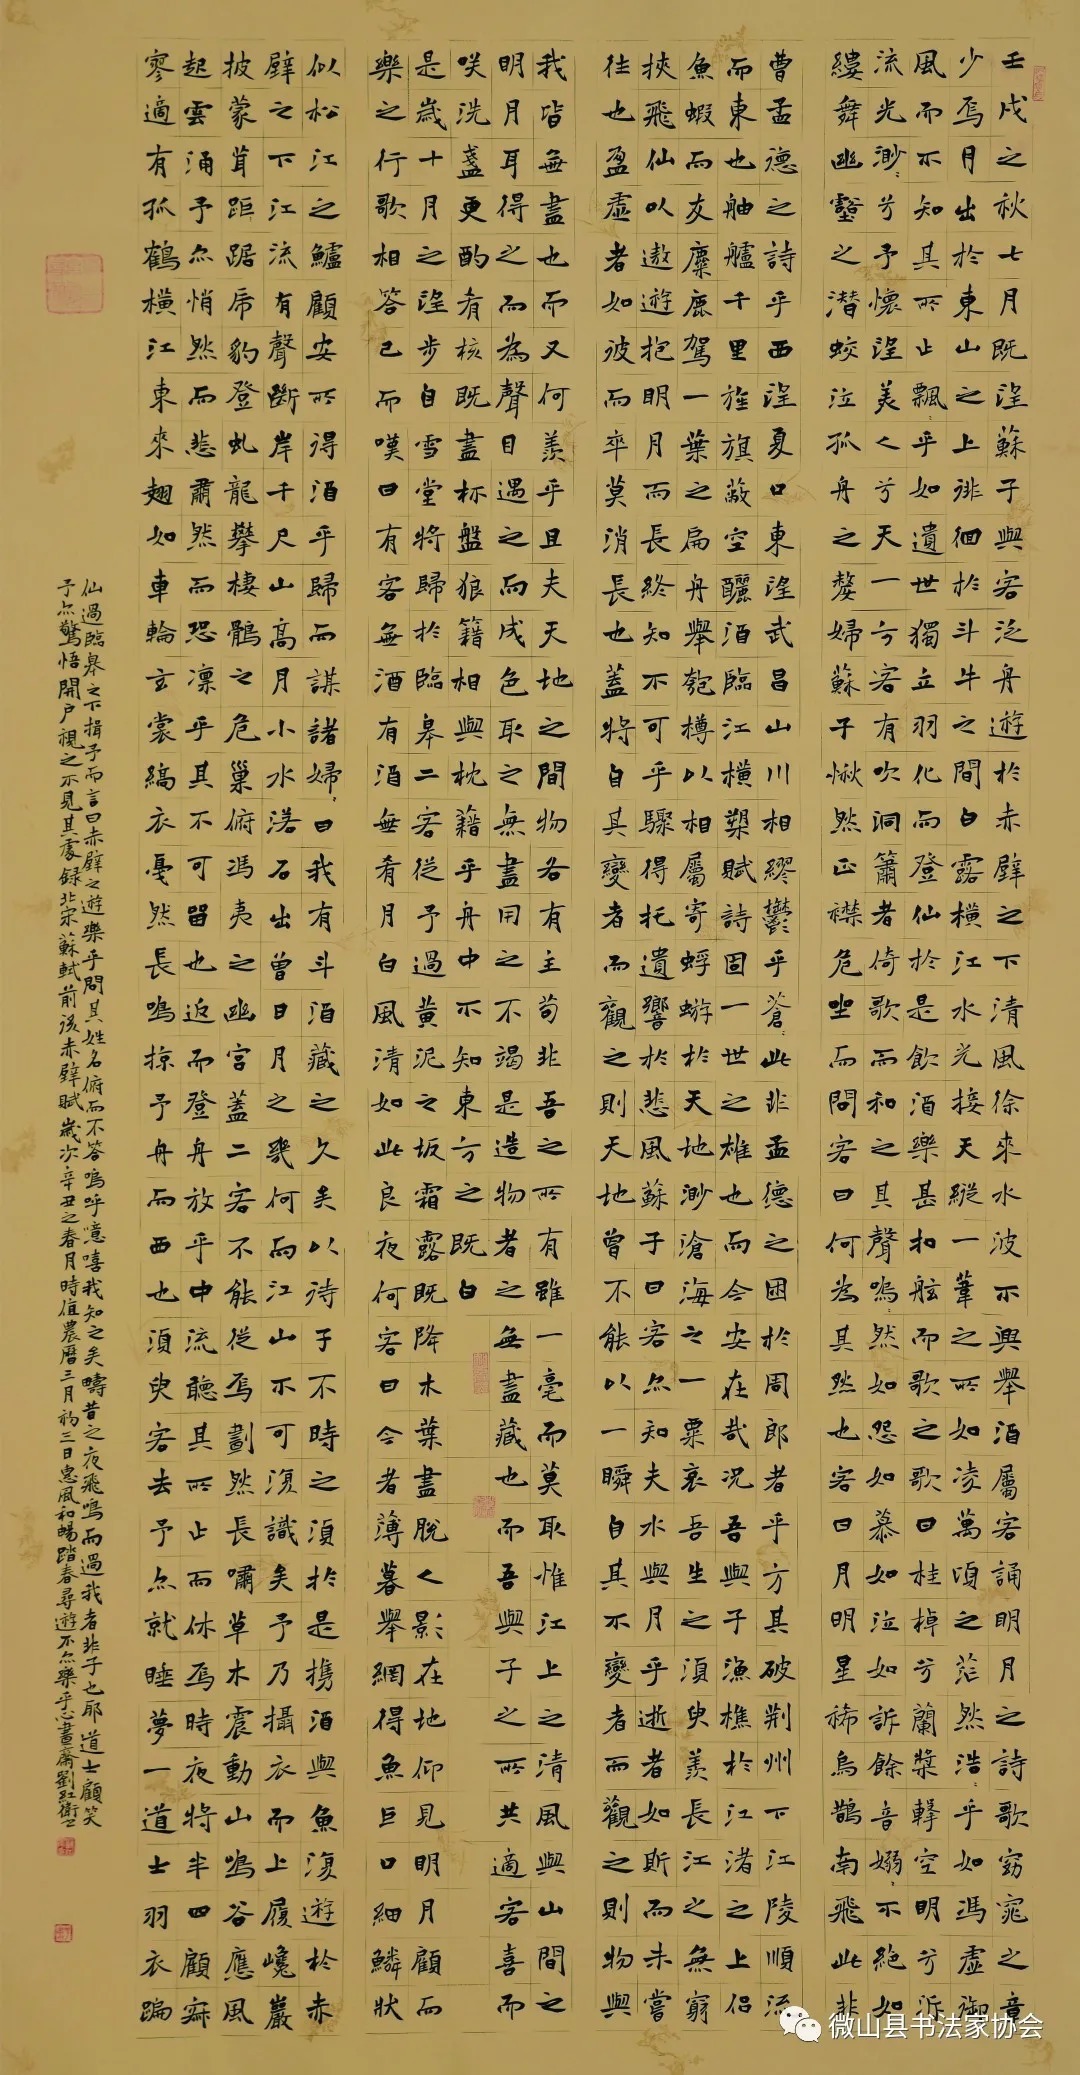 壬戌之秋七月既望蘇子與客泛舟遊於赤壁之下清風徐來水波不興舉酒屬客誦明月之詩歌窈窕之章
少焉月出於東山之上徘徊於斗牛之間白露橫江水光接天縱一葦之所如凌萬頃之茫然浩〻乎如馮虛御
風而不知其所止飄〻乎如遺世獨立羽化而登仙於是飲酒樂甚扣舷而歌之歌曰桂棹兮蘭槳擊空明兮泝
流光渺〻兮予懷望美人兮天一方客有吹洞簫者倚歌而和之其聲嗚〻然如怨如慕如泣如訴餘音嫋〻不絕如
縷舞幽壑之潛蛟泣孤舟之嫠婦蘇子愀然正襟危坐而問客曰何為其然也客曰月明星稀烏鵲南飛此非
曹孟德之詩乎西望夏口東望武昌山川相繆鬱乎蒼〻此非孟德之困於周郎者乎方其破荊州下江陵順流
而東也舳艫千里旌旗蔽空釃酒臨江橫槊賦詩固一世之雄也而今安在哉況吾與子漁樵於江渚之上侶
魚蝦而友麋鹿駕一葉之扁舟舉匏樽以相屬寄蜉蝣於天地渺滄海之一粟哀吾生之須臾羨長江之無窮
挾飛仙以遨遊抱明月而長終知不可乎驟得托遺響於悲風蘇子曰客亦知夫水與月乎逝者如斯而未嘗
往也盈虛者如彼而卒莫消長也蓋將自其變者而觀之則天地曾不能以一瞬自其不變者而觀之則物與
我皆無盡也而又何羨乎且夫天地之間物各有主苟非吾之所有雖一毫而莫取惟江上之清風與山間之
明月耳得之而為聲目遇之而成色取之無盡用之不竭是造物者之無盡藏也而吾與子之所共適客喜而
咲洗盞更酌肴核既盡杯盤狼籍相與枕籍乎舟中不知東方之既白
是歲十月之望步自雪堂將歸於臨皋二客從予過黃泥之坂霜露既降木葉盡脫人影在地仰見明月顧而
樂之行歌相答已而嘆曰有客無酒有酒無肴月白風清如此良夜何客曰今者薄暮舉網得魚巨口細鱗狀
似松江之鱸顧安所得酒乎歸而謀諸婦〻曰我有斗酒藏之久矣以待子不時之須於是攜酒與魚復遊於赤
壁之下江流有聲斷岸千尺山高月小水落石出曾日月之幾何而江山不可復識矣予乃攝衣而上履巉巖
披蒙茸距踞虎豹登虬龍攀棲鶻之危巢俯馮夷之幽宮蓋二客不能從焉劃然長嘯草木震動山鳴谷應風
起雲涌予亦悄然而悲肅然而恐凜乎其不可留也返而登舟放乎中流聽其所止而休焉時夜將半四顧寂
寥適有孤鶴橫江東來翅如車輪玄裳縞衣戛然長鳴掠予舟而西也須臾客去予亦就睡夢一道士羽衣蹁
仙過臨皋之下揖予而言曰赤壁之遊樂乎問其姓名俯而不答嗚呼噫嘻我知之矣疇昔之夜飛鳴而過我者非子也耶道士顧笑
予亦驚悟開戶視之不見其處錄北宋蘇軾前後赤壁賦歲次辛丑之春月時值農曆三月初三日惠風和暢踏春尋遊不亦樂乎心畫齋劉紅衛
微山县书法家协会